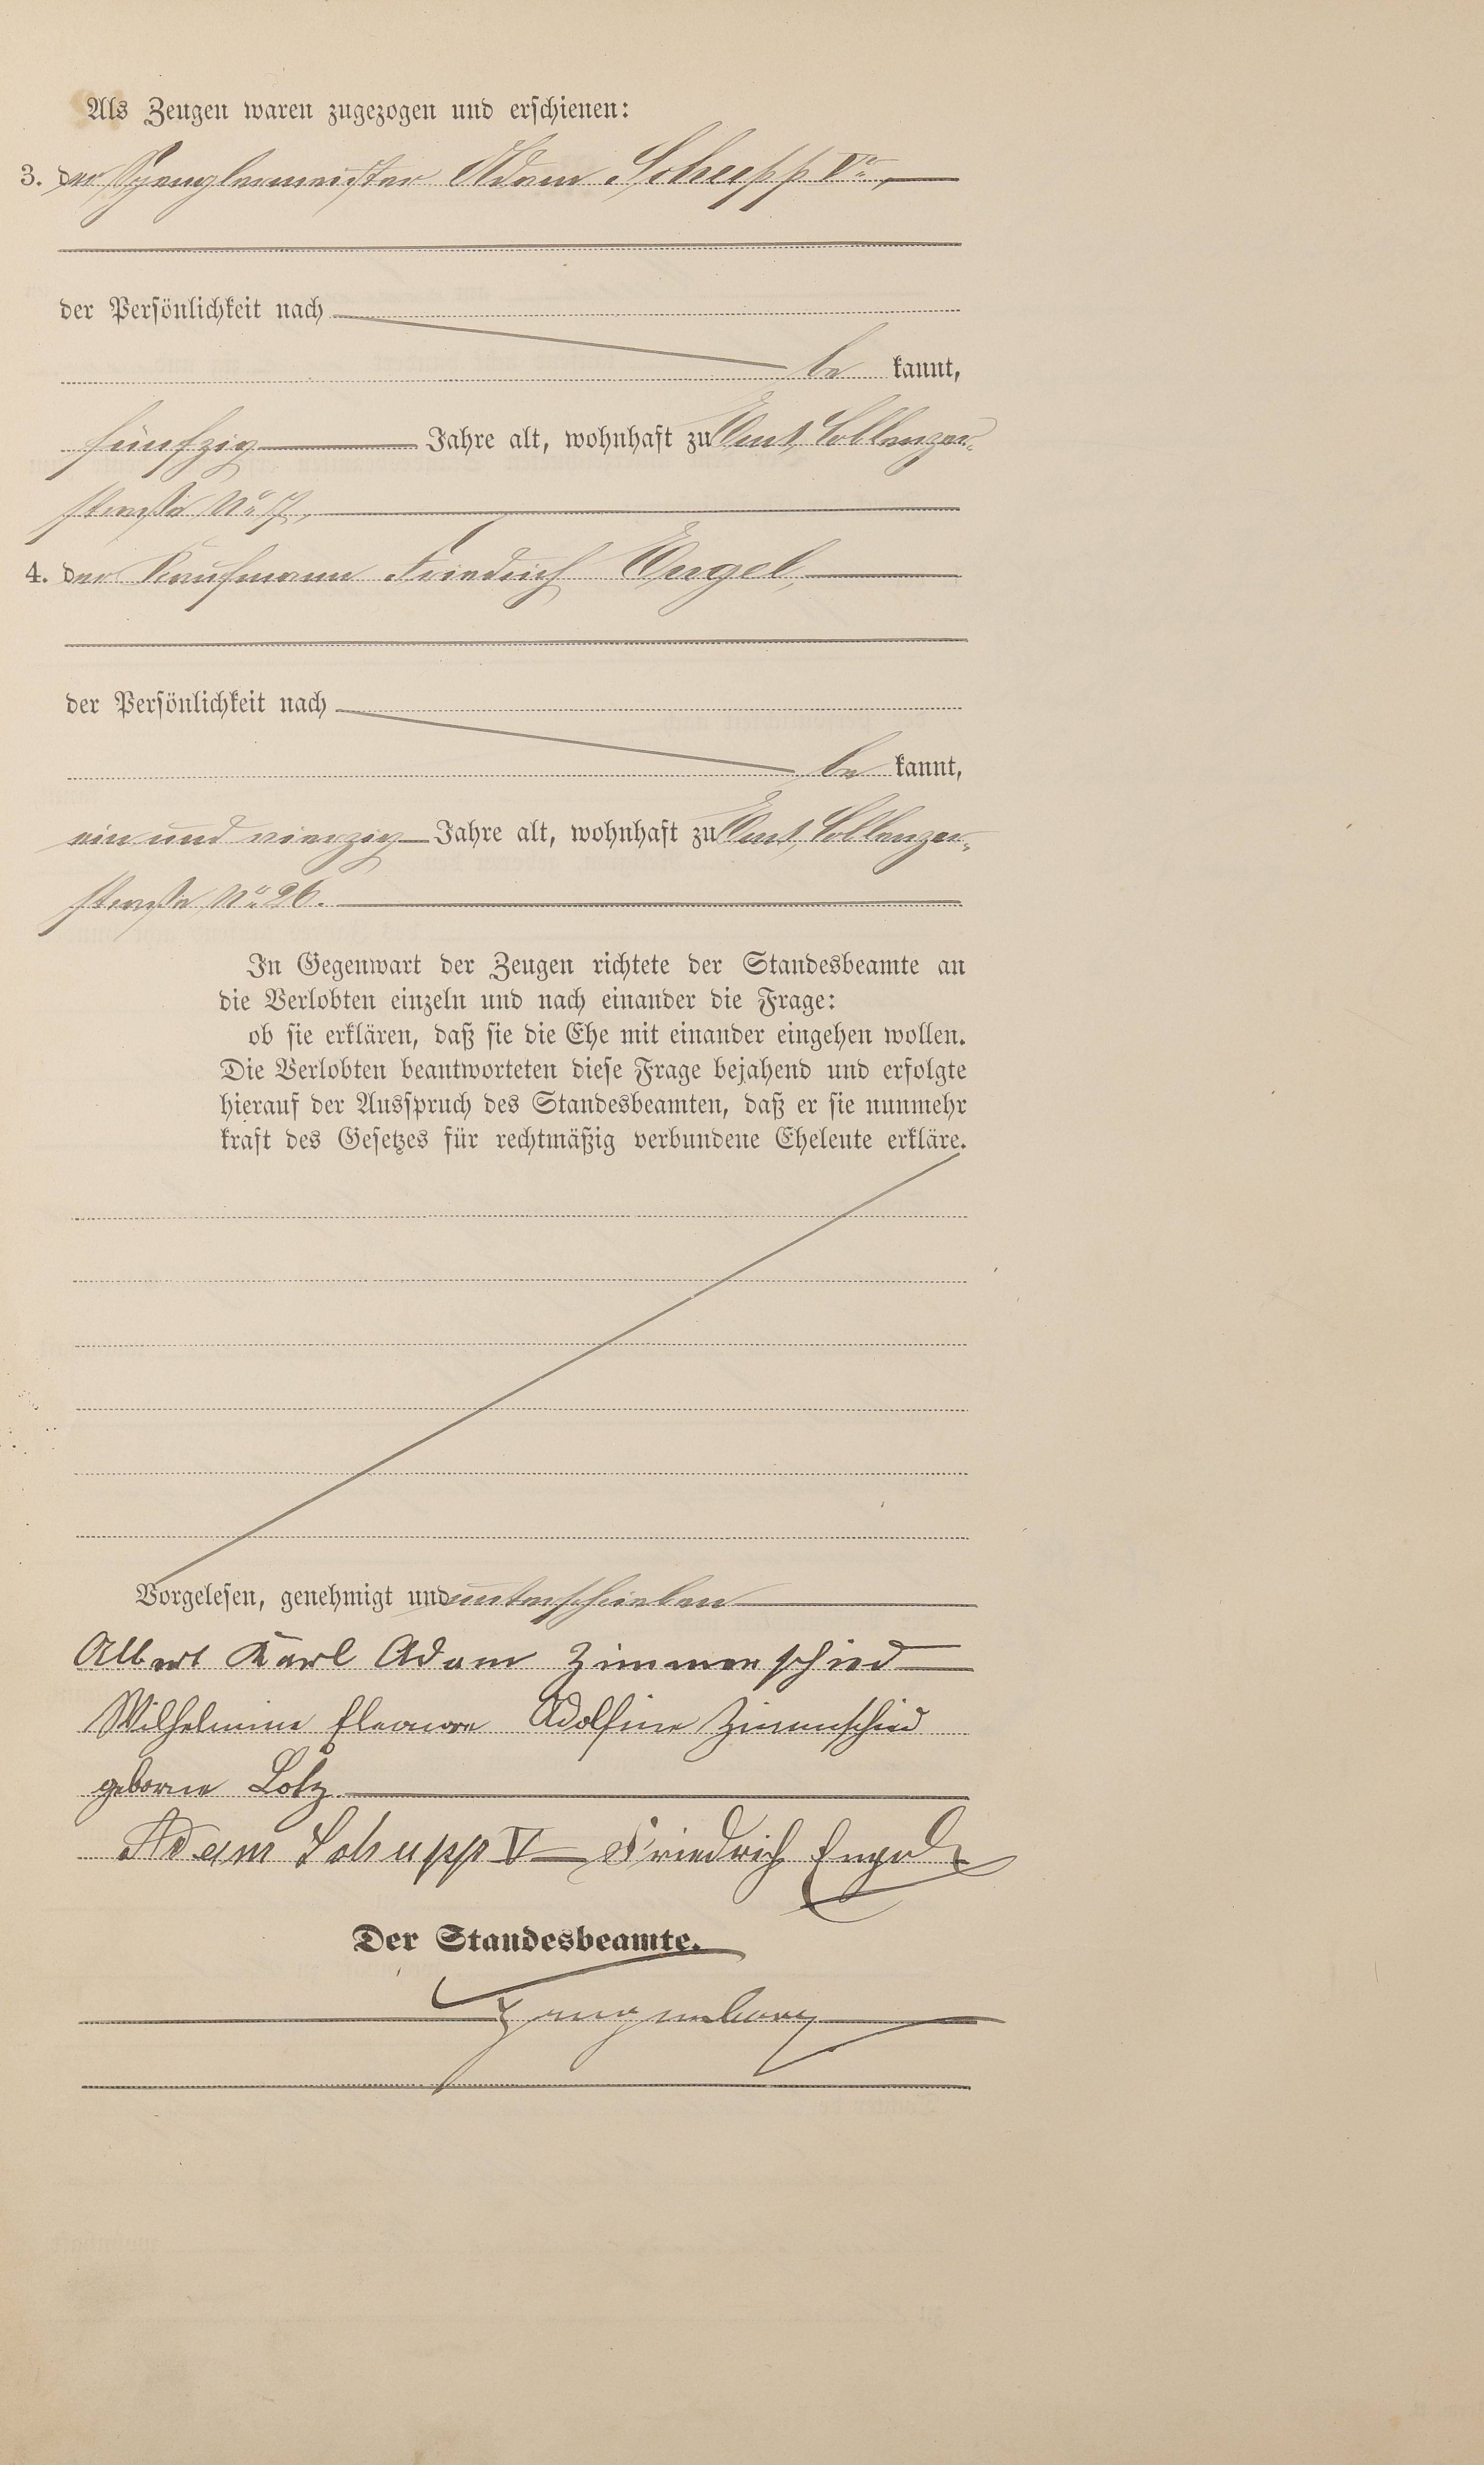 Als Zeugen waren zugezogen und erschienen:
3. der Spenglermeister Adam Schupp Vr.,
der Persönlichkeit nach
be kannt,
fünfzig Jahre alt, wohnhaft zu Ems, Coblenzer-
straße No 7,
4. der Kaufmann Friedrich Engel,
der Persönlichkeit nach
be kannt,
ein und vierzig Jahre alt, wohnhaft zu Ems, Coblenzer-
straße No 26.
In Gegenwart der Zeugen richtete der Standesbeamte an
die Verlobten einzeln und nach einander die Frage:
ob sie erklären, daß sie die Ehe mit einander eingehen wollen.
Die Verlobten beantworteten diese Frage bejahend und erfolgte
hierauf der Ausspruch des Standesbeamten, daß er sie nunmehr
kraft des Gesetzes für rechtmäßig verbundene Eheleute erkläre.
Vorgelesen, genehmigt und unterschrieben
Albert Karl Adam Zimmerschied
Wilhelmine Eleanore Adolfine Zimmschied
geborne Lotz.
Adam Schupp V Friedrich Engel
Der Standesbeamte.